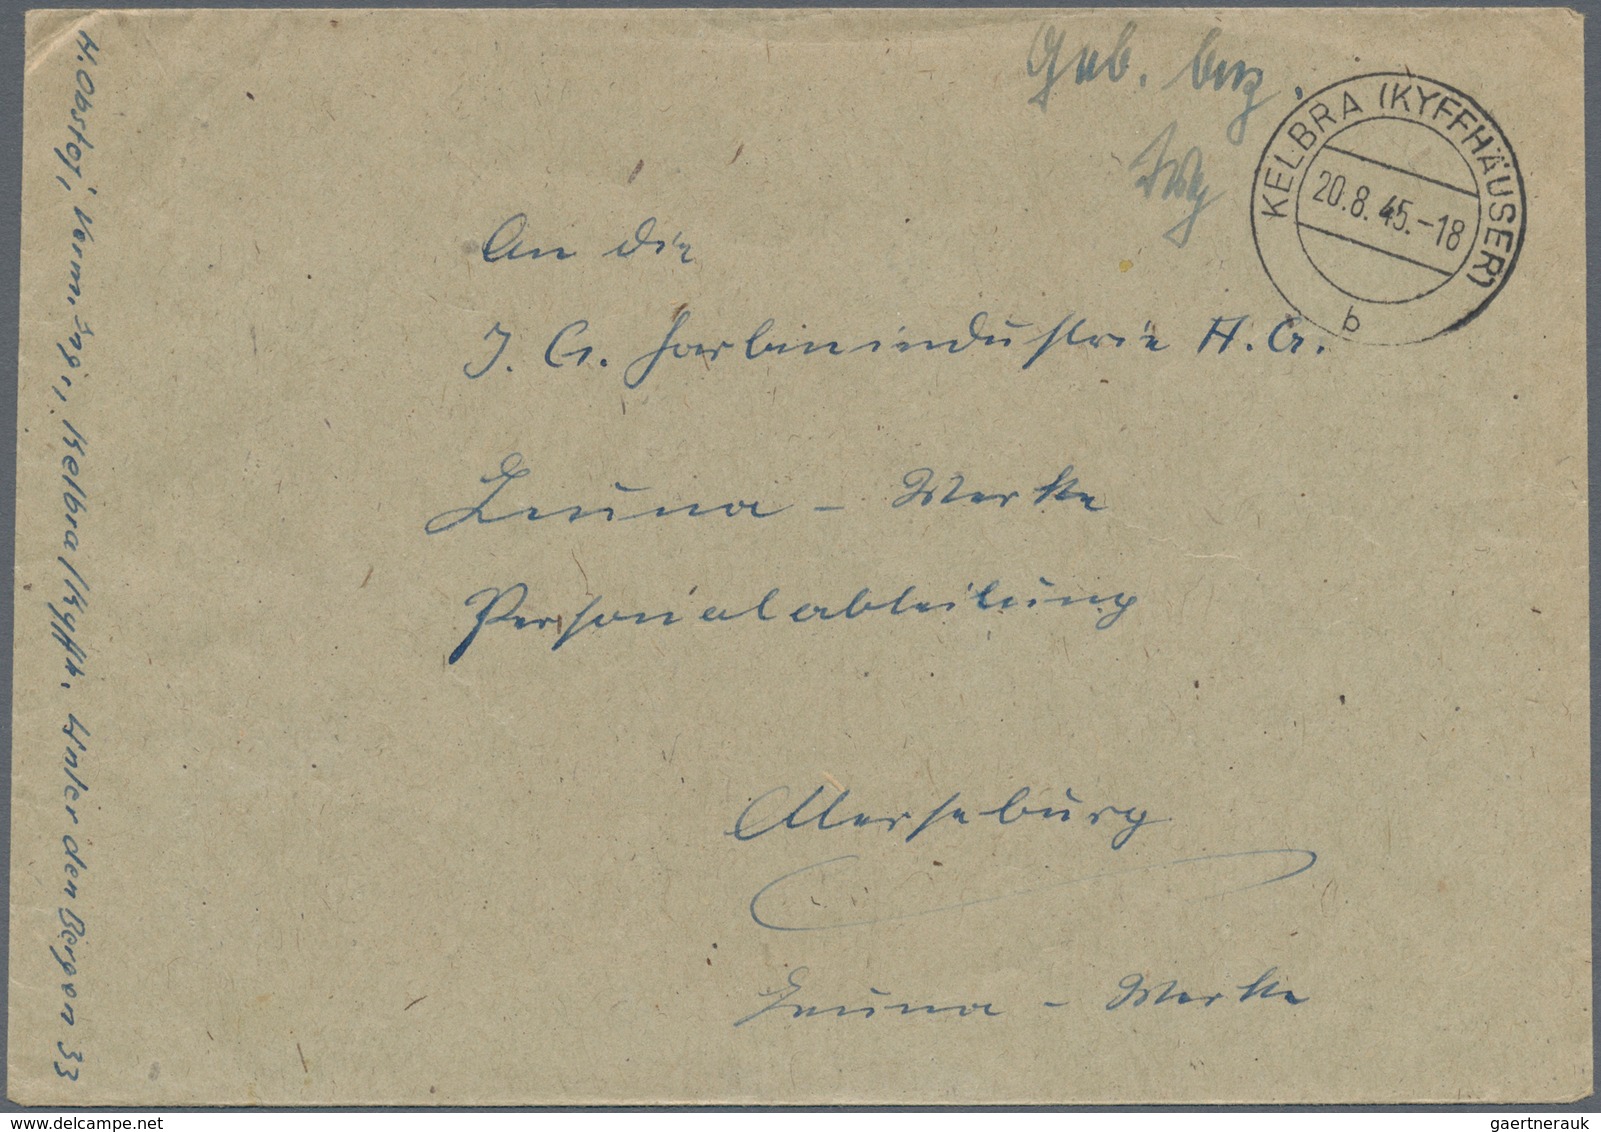 Geb. bez.
KELBRA (KYFFHÄUSER)
20.8.45.-18
b
An die
I. G. Farbenindustrie A.G.
Leuna - Werke
Personalabteilung
Merseburg
Leuna - Werke
H. Obstoj, Verm. Ing., Kelbra/Kyffh. Unter den Bergen 33
gaertnerauk